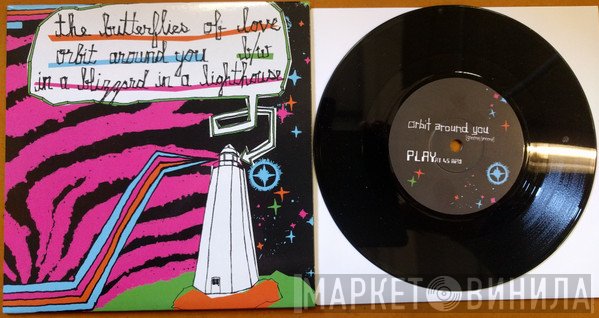 the butterflies of love
orbit around you b/w
in a blizzard in a lighthouse
orbit around you
PLAY AT 45 RPM
МАРКЕТ ВИНИЛА